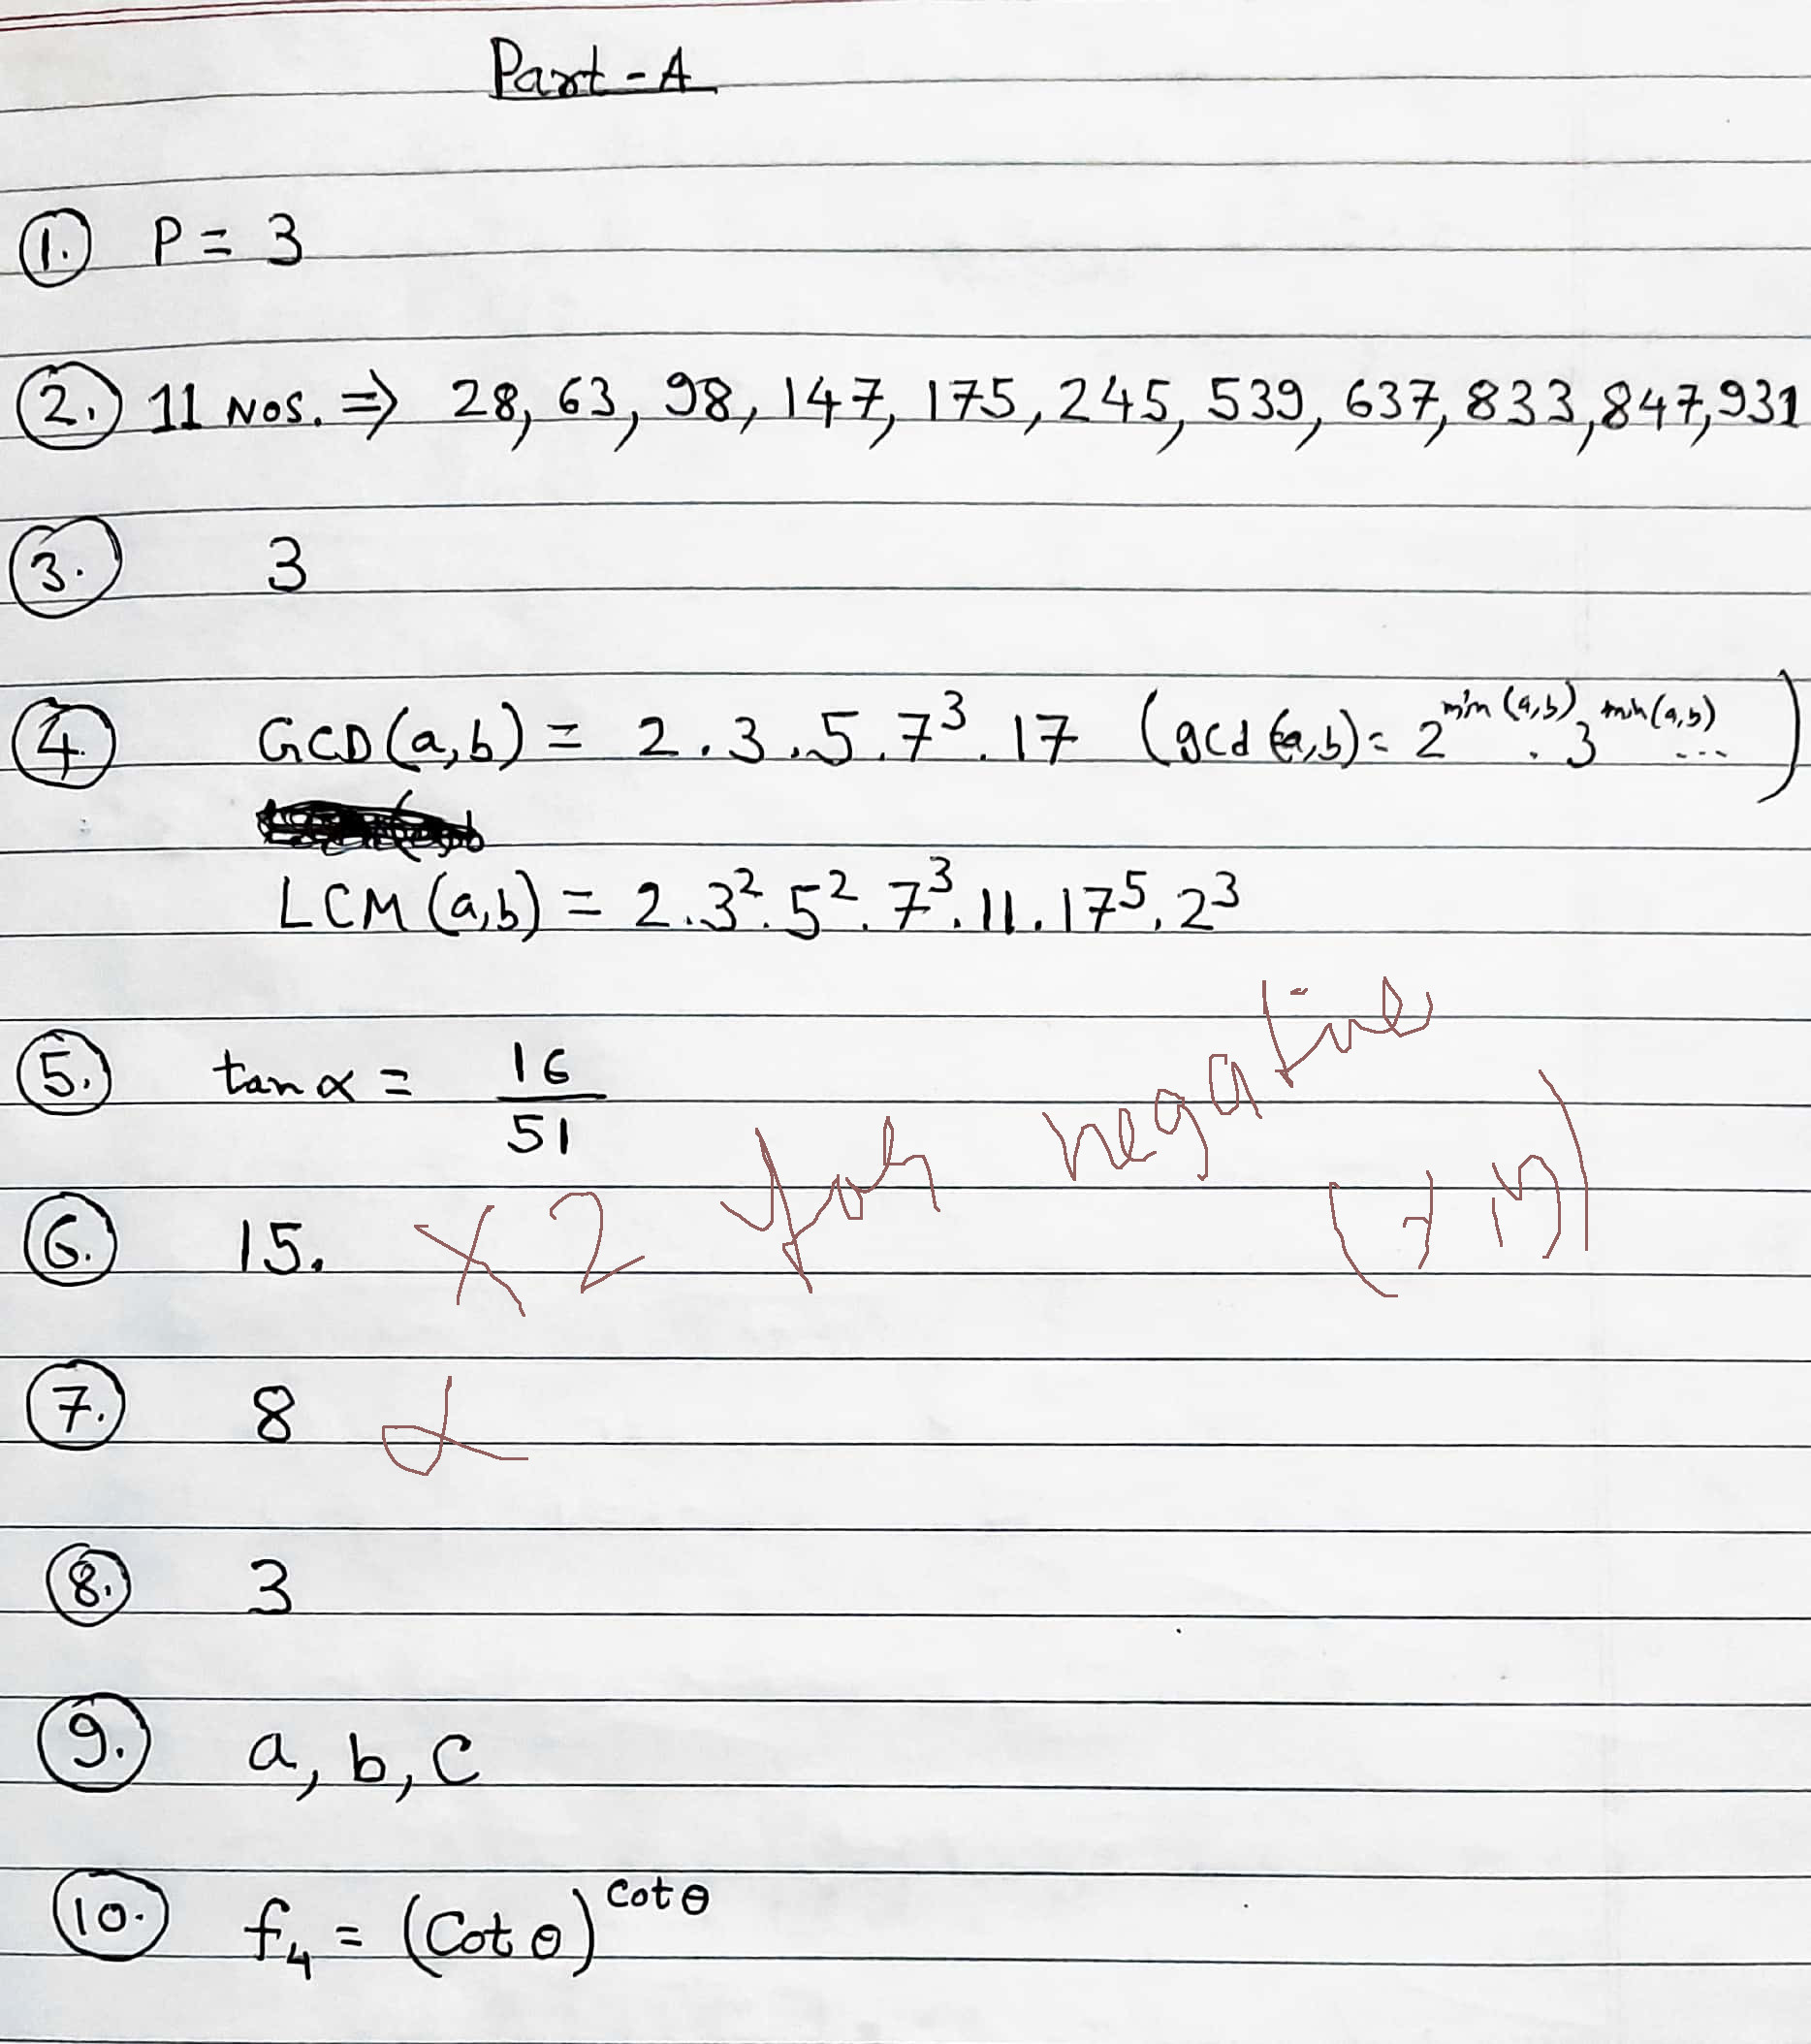 Part-A
1. P = 3
2. 11 Nos. ⇒ 28, 63, 98, 147, 175, 245, 539, 637, 833, 847, 931
3. 3
4. GCD(a,b) = 2.3.5.7³.17 (gcd(a,b) = 2^min(a,b) . 3^min(a,b) ...)
LCM(a,b) = 2.3².5².7³.11.17⁵.2³
5. tan α = 16/51
6. 15. × 2 for negative
7. 8
8. 3
9. a, b, c
10. f₄ = (Cot θ)^cot θ